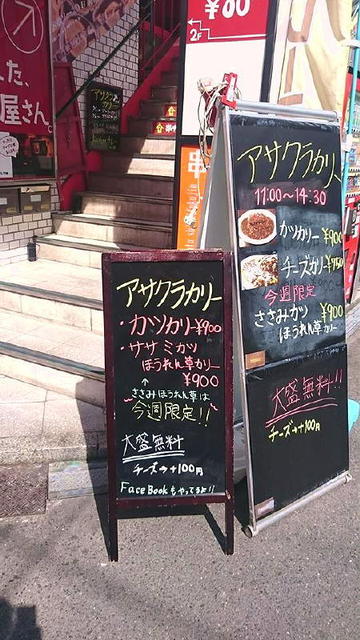 ¥80
2F
た、
屋さん。
串
アサクラカリー
・カツカリー¥900
・ササミカツ
ほうれん草カリー
¥900
↑
ささみほうれん草は
今週限定!!
大盛無料
チーズ→+100円
FaceBookもやってるよ!!
アサクラカリー
11:00~14:30
カツカリー ¥900
チーズカリー¥750
今週限定
ささみカツ ¥900
ほうれん草カリー
大盛無料!!
チーズ→+100円